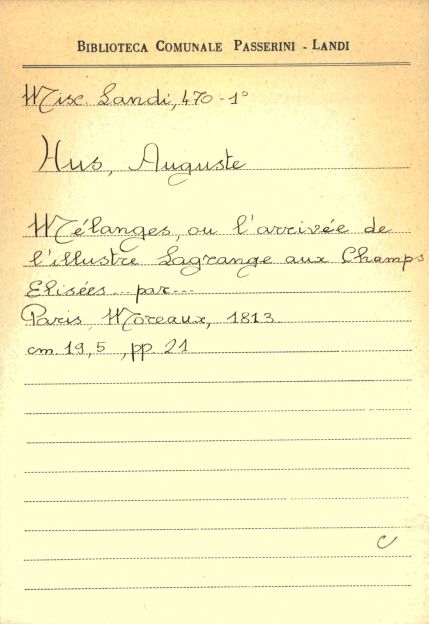 BIBLIOTECA COMUNALE PASSERINI - LANDI
Misc. Landi, 470 - 1°
Hus, Auguste
Mélanges, ou l'arrivée de
l'illustre Lagrange aux Champs
Elisées ... par ...
Paris, Moreaux, 1813
cm 19,5, pp. 21
C